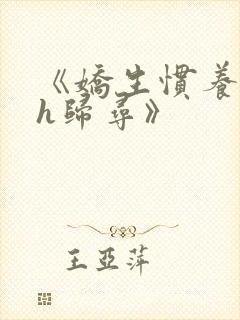 《嬌生慣養
h歸尋》
王亞萍